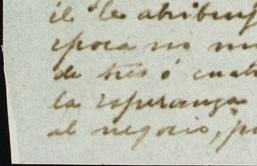 él le atribuy
epoca no mu
de tres ó cuat
la esperanza
al negocio, po